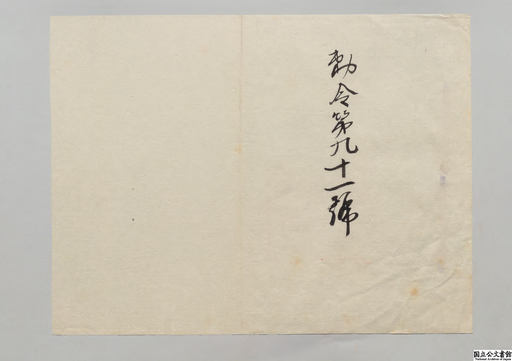 勅令第九十一號
国立公文書館
National Archives of Japan